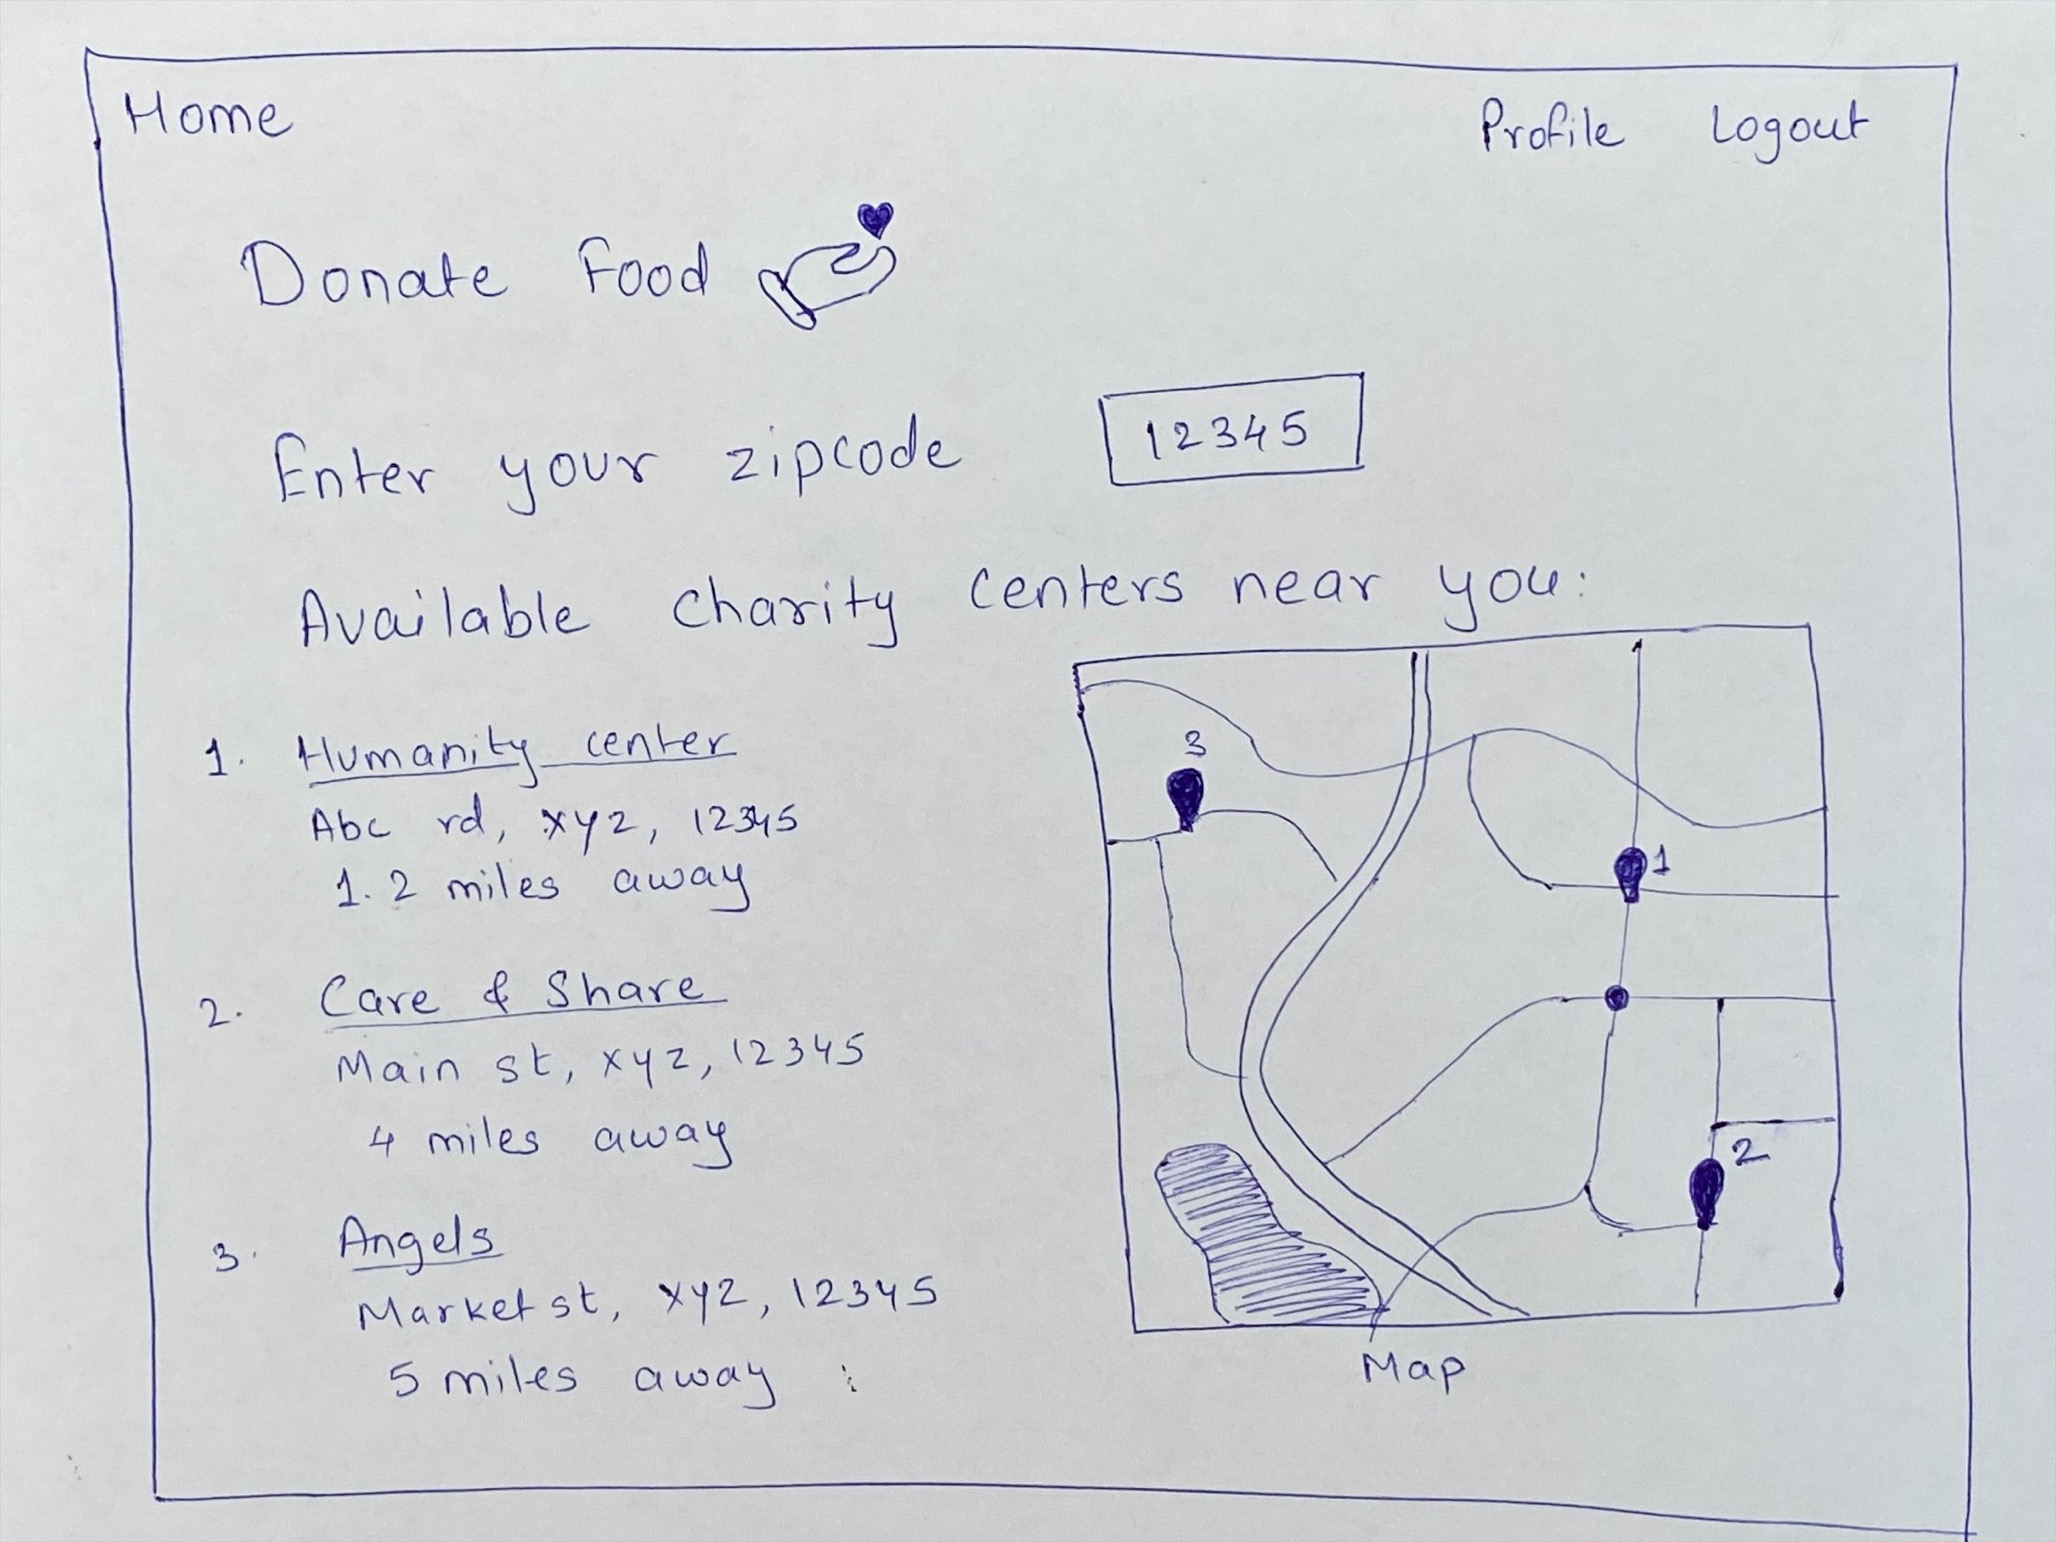 Home Profile Logout
Donate Food
Enter your zipcode 12345
Available Charity Centers near you:
1. Humanity center
Abc rd, xyz, 12345
1.2 miles away
2. Care & Share
Main st, xyz, 12345
4 miles away
3. Angels
Market st, xyz, 12345
5 miles away
3
1
2
Map